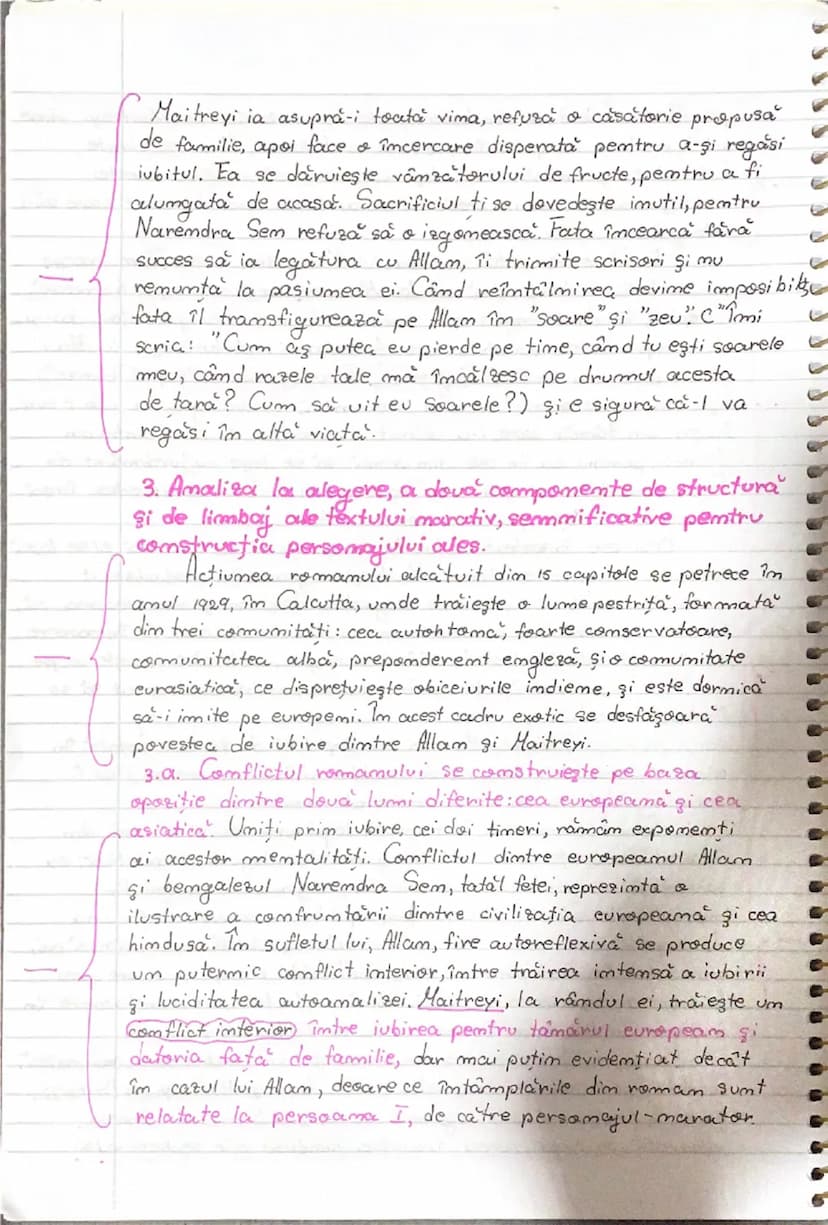 Maitreyi ia asupră-i toată vina, refuză o căsătorie propusă
de familie, apoi face o încercare disperată pentru a-și regăsi
iubitul. Ea se dăruiește vânzătorului de fructe, pentru a fi
alungată de acasă. Sacrificiul ți se dovedește inutil, pentru
Narendra Sen refuză să o izgonească. Fata încearcă fără
succes să ia legătura cu Allan, îi trimite scrisori și nu
renunță la pasiunea ei. Când reîntâlnirea devine imposibilă,
fata îl transfigurează pe Allan în "soare" și "zeu". C "Îmi
scria: "Cum aș putea eu pierde pe tine, când tu ești soarele
meu, când razele tale mă încălzesc pe drumul acesta
de țară? Cum să uit eu soarele?) și e sigură că-l va
regăsi în altă viață.
3. Analiza la alegere, a două componente de structură
și de limbaj ale textului narativ, semnificative pentru
construcția personajului ales.
Acțiunea romanului alcătuit din 15 capitole se petrece în
anul 1929, în Calcutta, unde trăiește o lume pestriță, formată
din trei comunități: cea autohtonă, foarte conservatoare,
comunitatea albă, preponderent engleză, și o comunitate
eurasiatică, ce disprețuiește obiceiurile indiene, și este dornică
să-i imite pe europeni. În acest cadru exotic se desfășoară
povestea de iubire dintre Allan și Maitreyi.
3.a. Conflictul romanului se construiește pe baza
opoziție dintre două lumi diferite: cea europeană și cea
asiatică. Uniți prin iubire, cei doi tineri, rămân exponenți
ai acestor mentalități. Conflictul dintre europeanul Allan
și bengalezul Narendra Sen, tatăl fetei, reprezintă o
ilustrare a confruntării dintre civilizația europeană și cea
hindusă. În sufletul lui, Allan, fire autoreflexivă se produce
un puternic conflict interior, între trăirea intensă a iubirii
și luciditatea autoanalizei. Maitreyi, la rândul ei, trăiește un
conflict interior între iubirea pentru tânărul european și
datoria față de familie, dar mai puțin evidențiat decât
în cazul lui Allan, deoarece întâmplările din roman sunt
relatate la persoana I, de către personajul-narator.